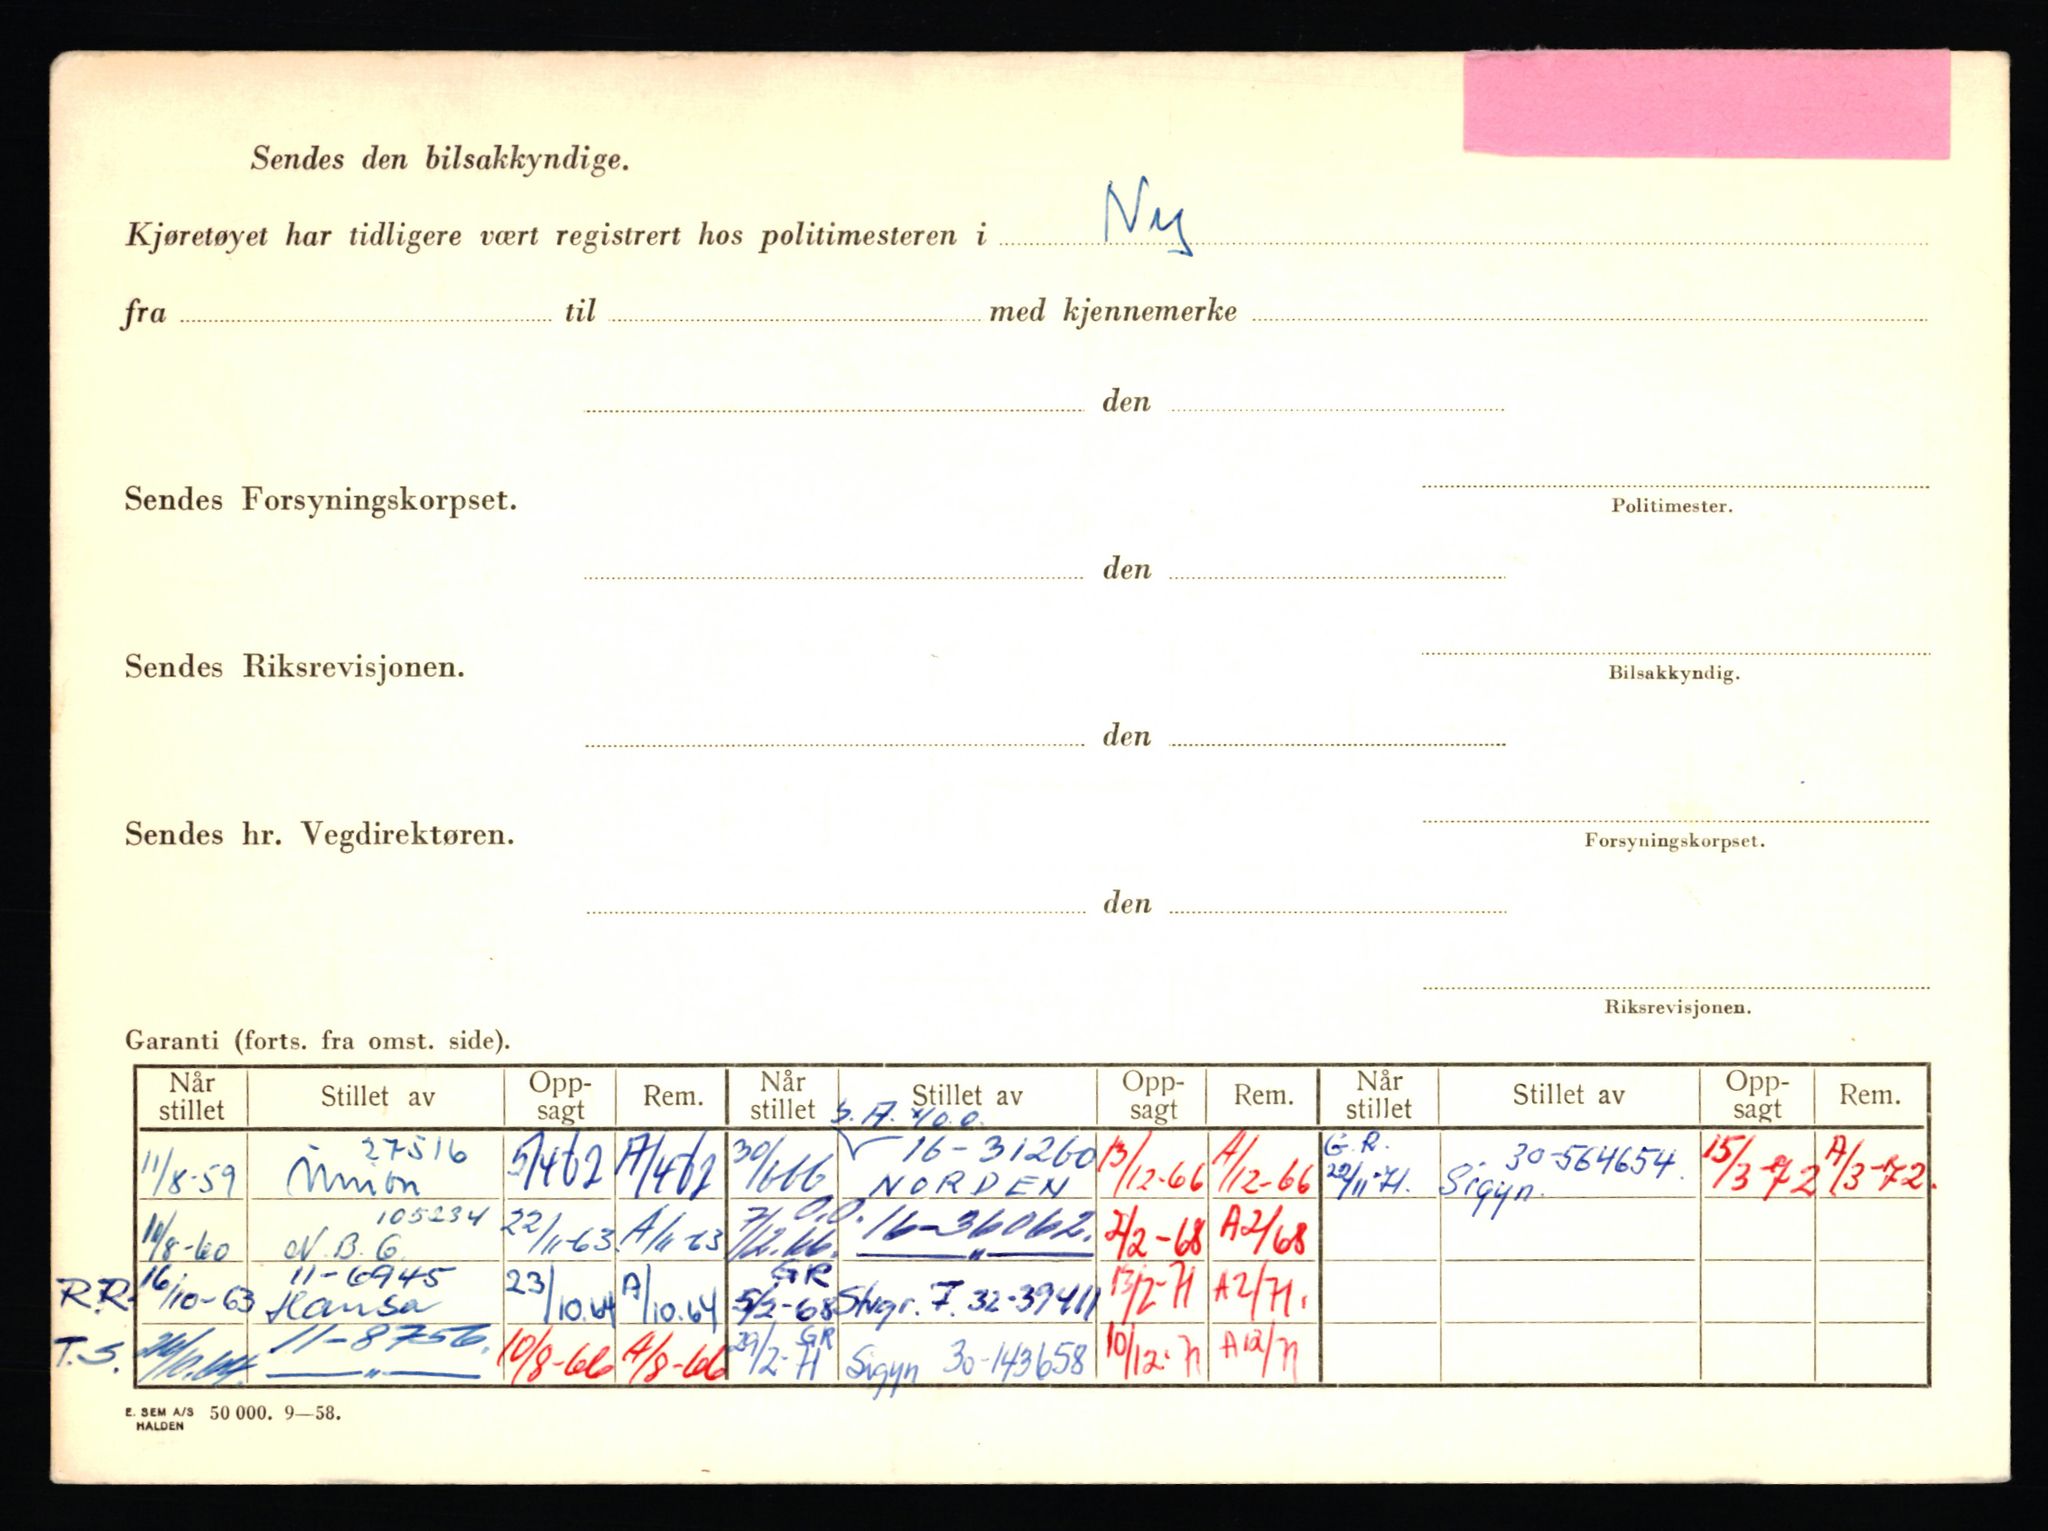 Sendes den bilsakkyndige.
Kjøretøyet har tidligere vært registrert hos politimesteren i Ny
fra til med kjennemerke
den
Sendes Forsyningskorpset.
Politimester.
den
Sendes Riksrevisjonen.
Bilsakkyndig.
den
Sendes hr. Vegdirektøren.
Forsyningskorpset.
den
Riksrevisjonen.
Garanti (forts. fra omst. side).
Når stillet Stillet av Opp-sagt Rem. Når stillet Stillet av Opp-sagt Rem. Når stillet Stillet av Opp-sagt Rem.
11/8-59 27516 Union 5/4 62 A/4 62 30/1 66 16-31260 NORDEN 13/12-66 A/12-66 G.R. 22/11-71. 30-564654. Sigyn. 15/3-72 A/3-72.
11/8-60 105234 N.B.G. 22/11-63. A/11-63 7/12.66. O.O. 16-36062. —„— 2/2-68 A2/68
R.R. 16/10-63 11-6945 Hansa 23/10.64 A/10.64 GR 5/2-68 Stvgr. 7. 32-39411 13/2-71 A2/71.
T.S. 11-8756. —„— 10/8-66 A/8-66 29/2-71 GR Sigyn 30-143658 10/12-71 A12/71
E. SEM A/S HALDEN 50 000. 9—58.